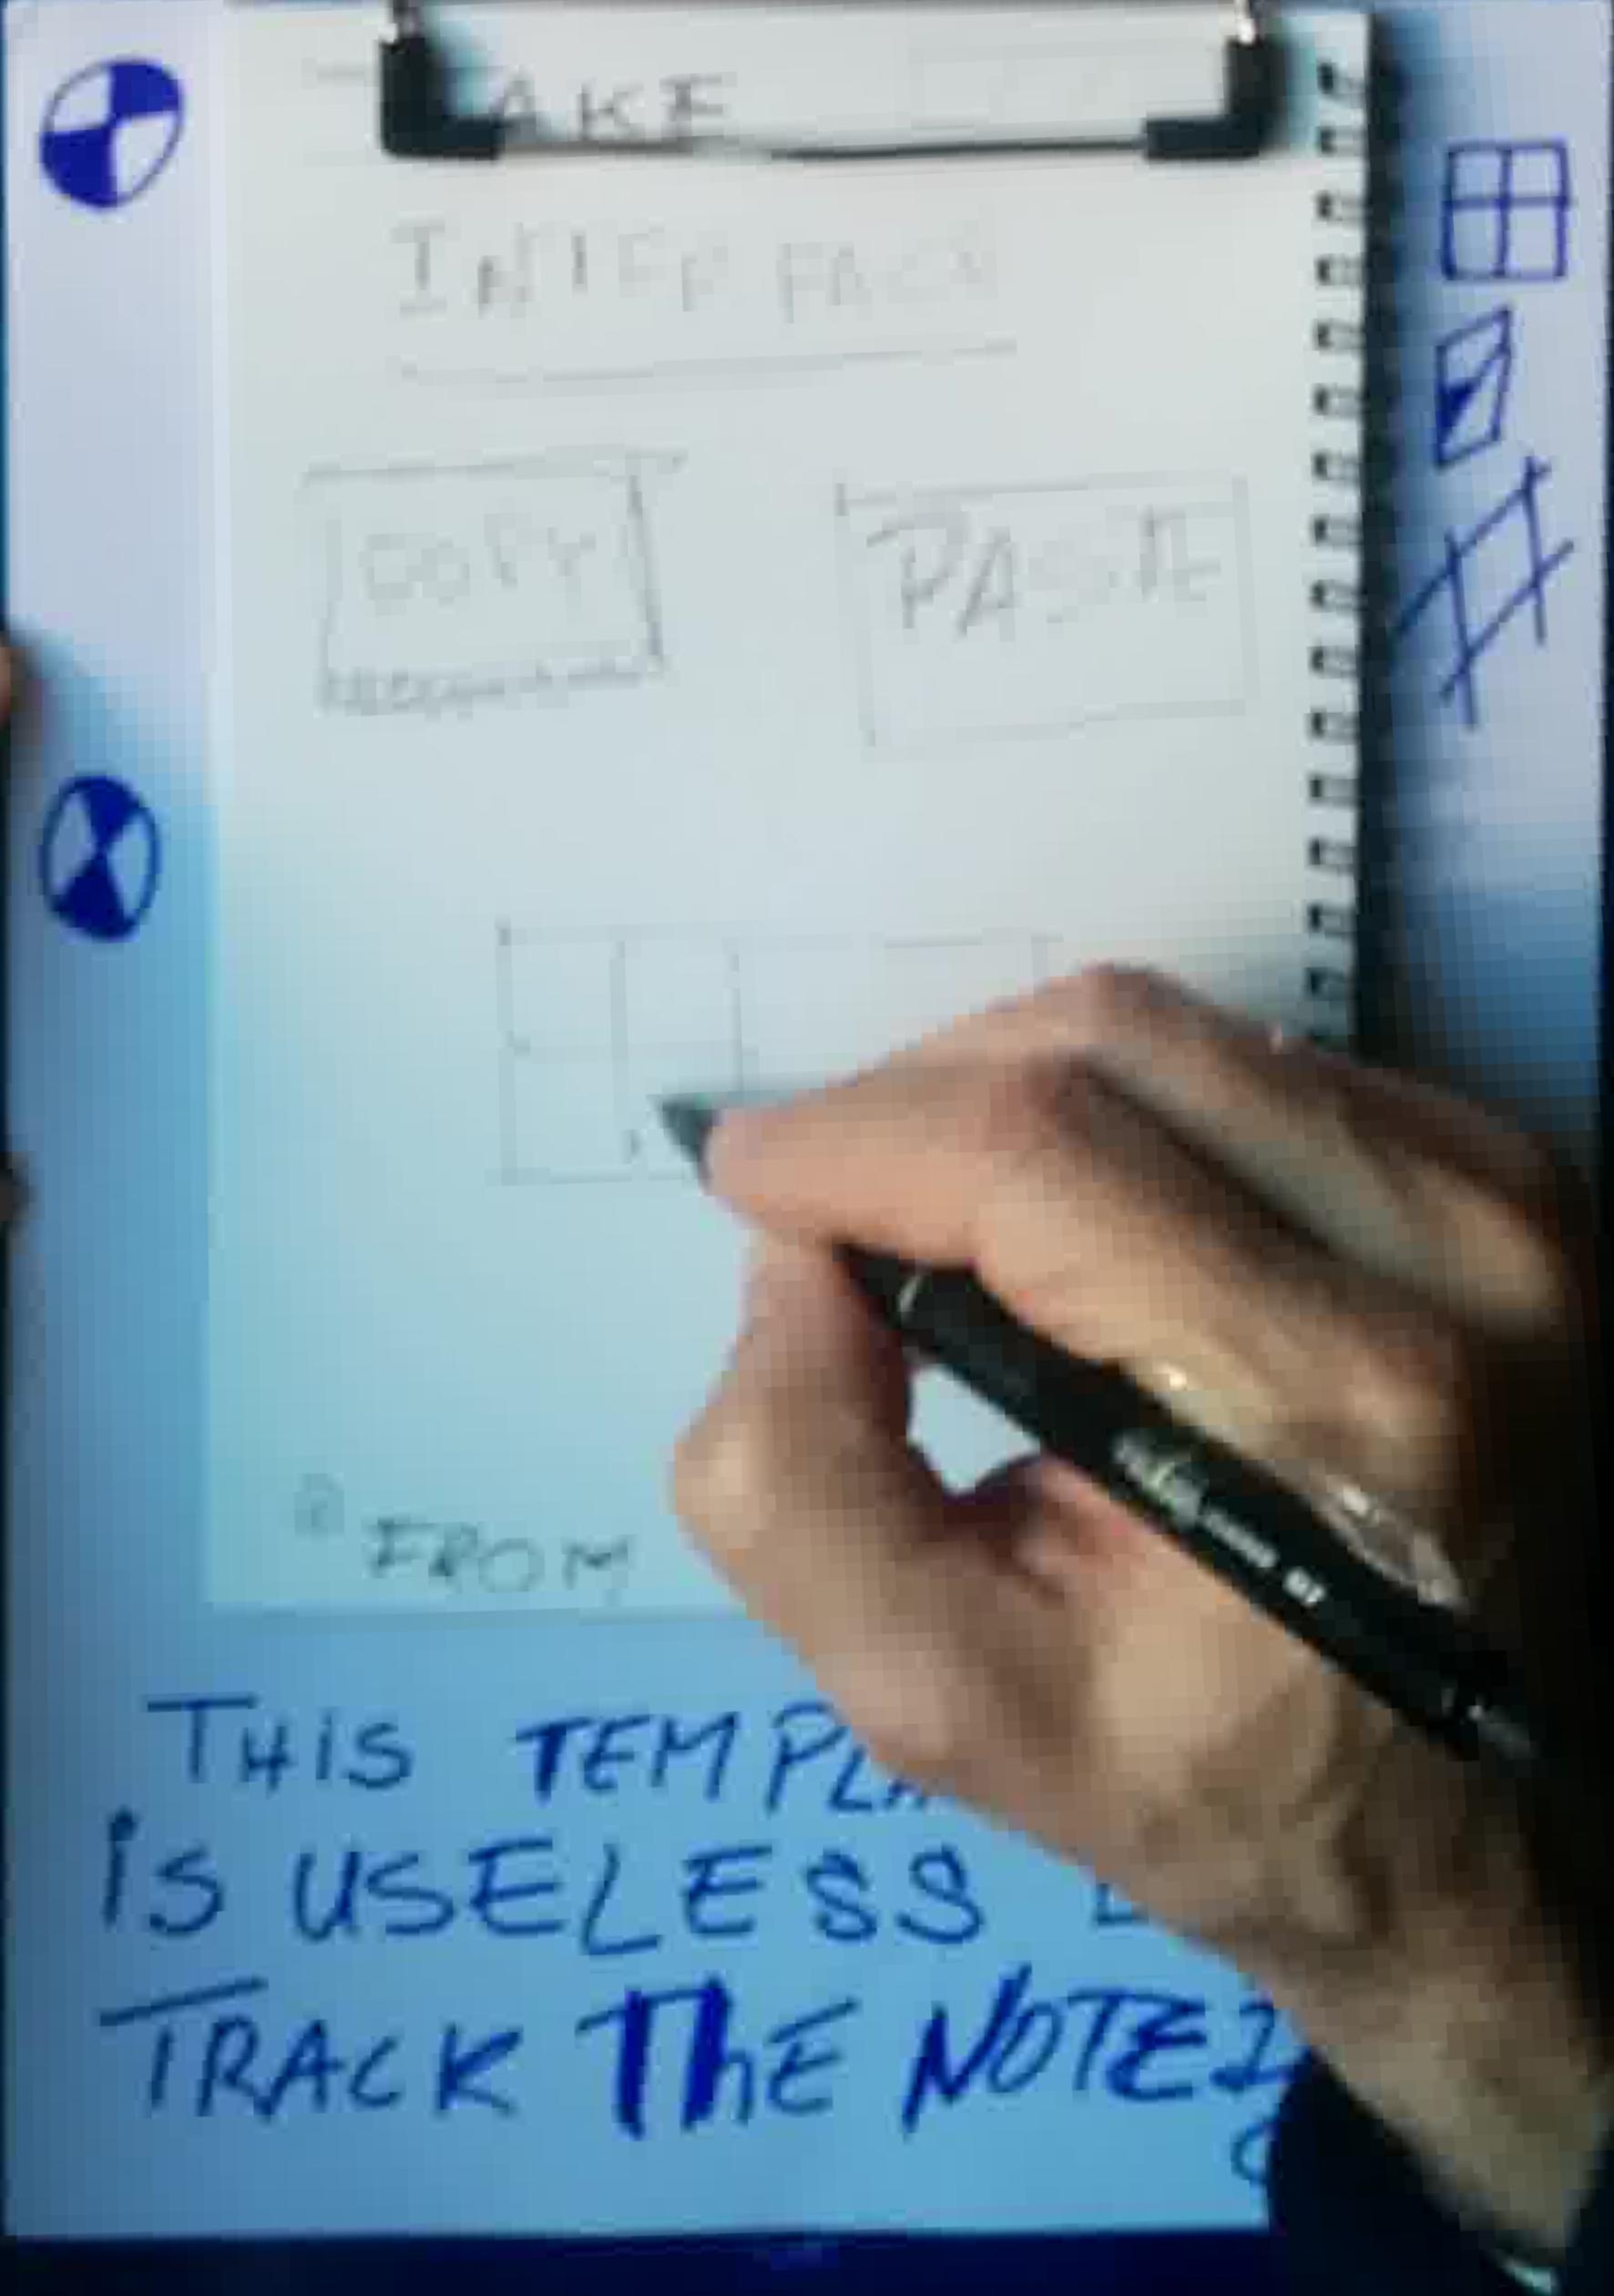 AKE
INTERFACE
COPY
PASTE
FROM
THIS
iS USELESS
TRACK ThE